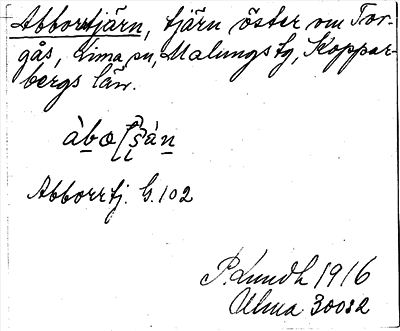 Abborrtjärn, tjärn öster om Tor-
gås, Lima sn, Malungs tg, Koppar-
bergs län.
Abborrtj. G. 102
P. Lundh 1916
Ulma 30082